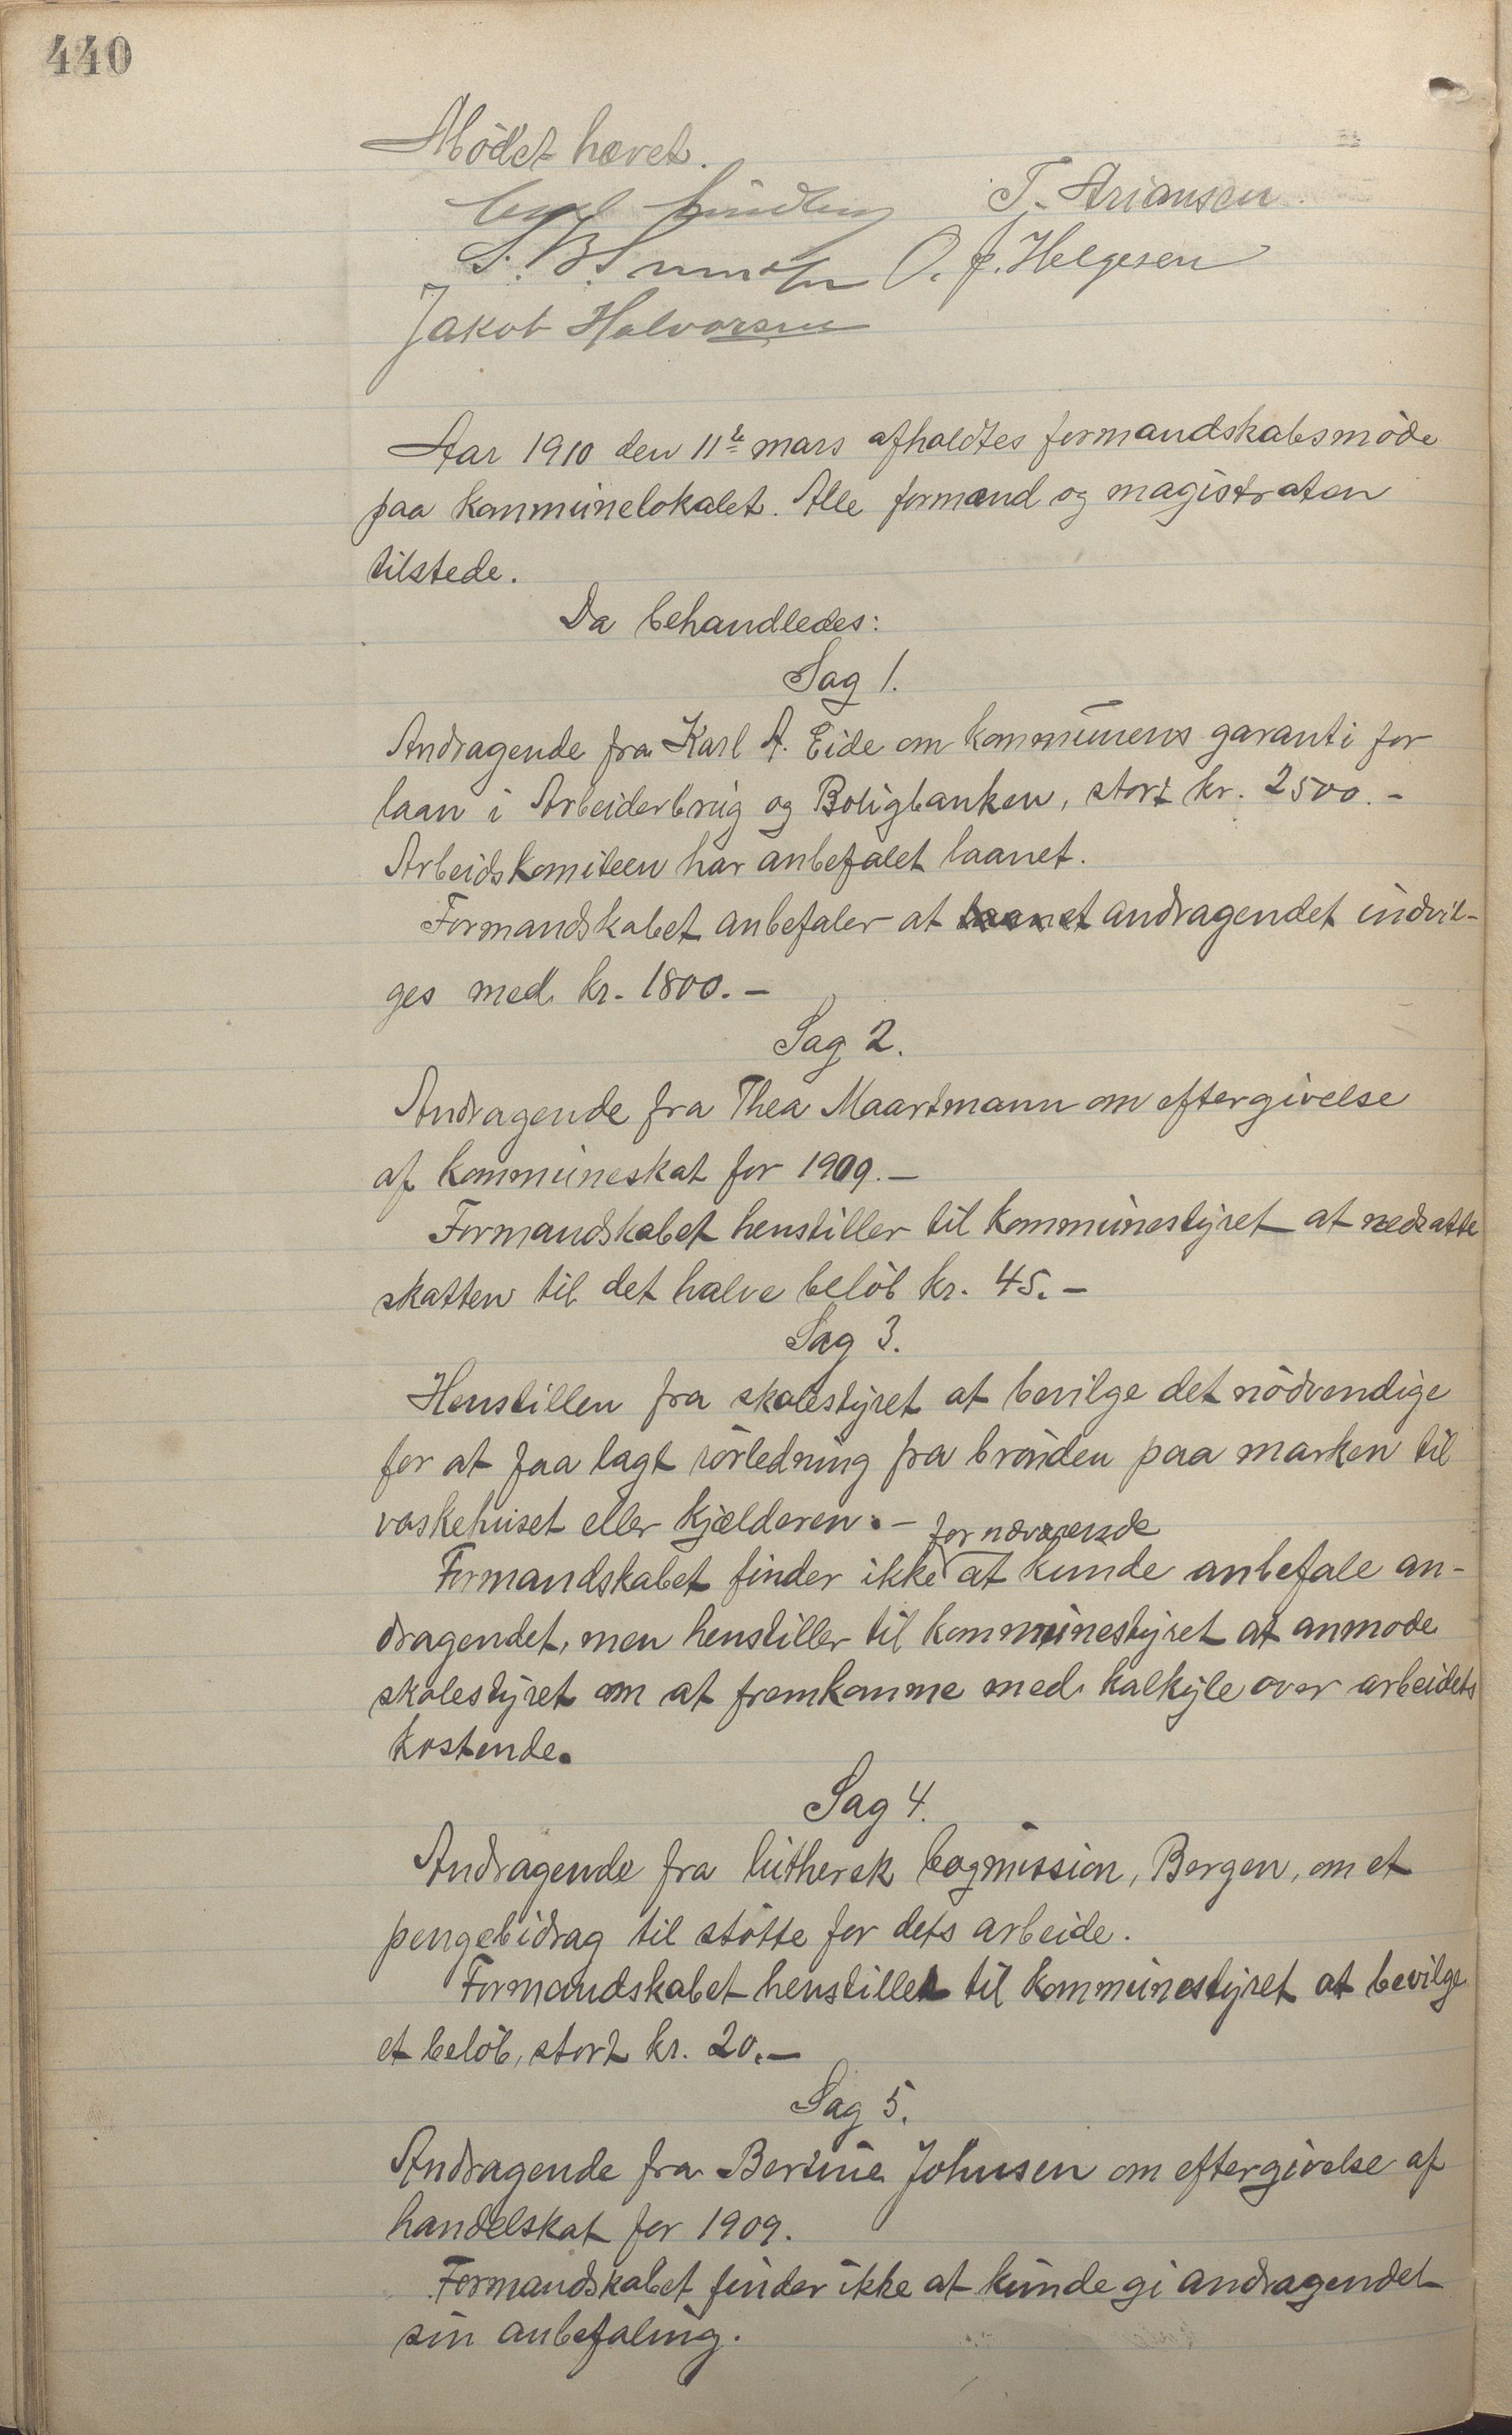 440
Mødet hævet.
T. Ariansen
O. J. Helgesen
Jakob Halvorsen
Aar 1910 den 11te mars afholdtes formandskabsmøde
paa kommunelokalet. Alle formænd og magistraten
tilstede.
Da behandledes:
Sag 1.
Andragende fra Karl A. Eide om kommunens garanti for
laan i Arbeiderbrug og Boligbanken, stort kr. 2500.-
Arbeidskomiteen har anbefalet laanet.
Formandskabet anbefaler at laanet andragendet indvil-
ges med kr. 1800.-
Sag 2.
Andragende fra Thea Maartmann om eftergivelse
af kommuneskat for 1909.-
Formandskabet henstiller til kommunestyret at nedsætte
skatten til det halve beløb kr. 45.-
Sag 3.
Henstillen fra skolestyret at bevilge det nødvendige
for at faa lagt rørledning fra brønden paa marken til
vaskehuset eller kjælderen.-
for nærværende
Formandskabet finder ikke at kunde anbefale an-
dragendet, men henstiller til kommunestyret at anmode
skolestyret om at fremkomme med kalkyle over arbeidets
kostende.
Sag 4.
Andragende fra luthersk bogmission, Bergen, om et
pengebidrag til støtte for dets arbeide.
Formandskabet henstiller til kommunestyret at bevilge
et beløb, stort kr. 20.-
Sag 5.
Andragende fra Bertine Johnsen om eftergivelse af
handelskat for 1909.
Formandskabet finder ikke at kunde gi andragendet
sin anbefaling.